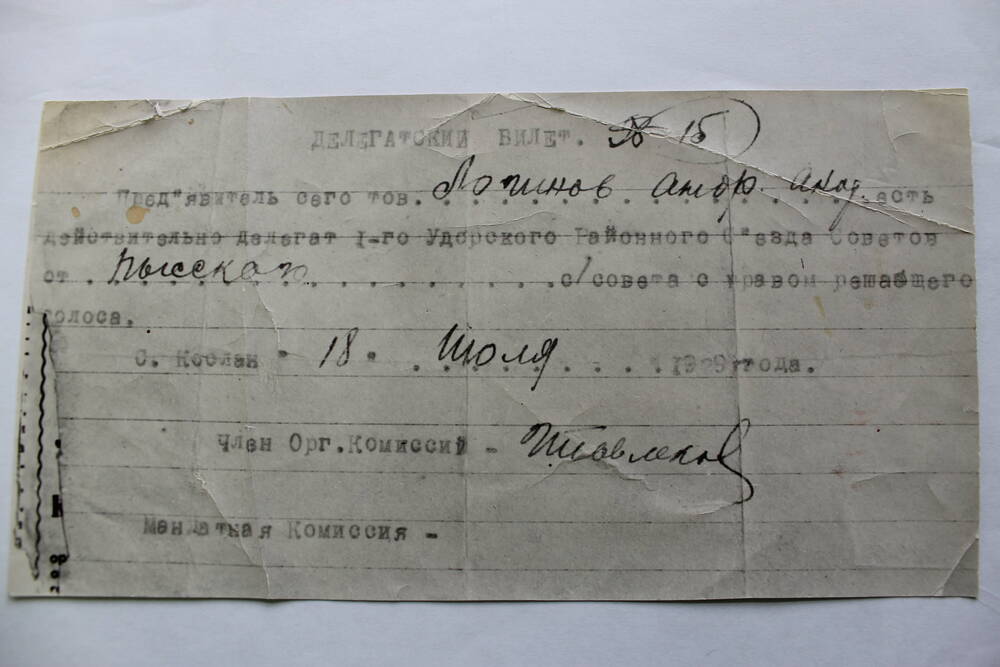 ДЕЛЕГАТСКИЙ БИЛЕТ. № 15
Пред"явитель сего тов. Логинов есть
действительно делегат 1-го Удорского Районного С"езда Советов
от . Пысскаго с/совета с правом решающего
голоса.
С. Кослан " 18 " Июля 1929 года.
Член Орг.Комиссий -
Мандатная Комиссия -